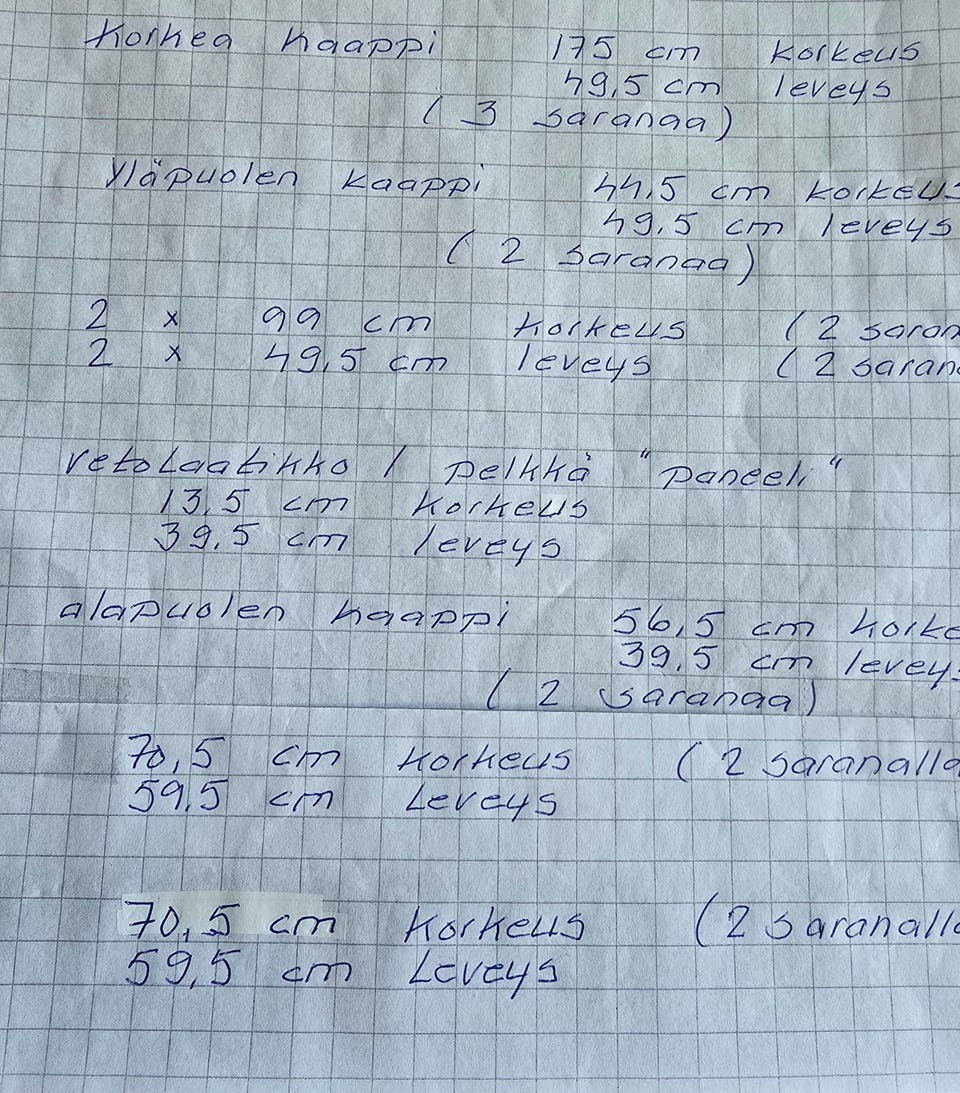 Korkea kaappi 175 cm korkeus
49,5 cm leveys
( 3 saranaa )
Yläpuolen kaappi 44,5 cm korkeus
49,5 cm leveys
( 2 saranaa )
2 x 99 cm korkeus ( 2 saran
2 x 49,5 cm leveys ( 2 saran
vetolaatikko / pelkkä "paneeli"
13,5 cm korkeus
39,5 cm leveys
alapuolen kaappi 56,5 cm korke
39,5 cm leveys
( 2 saranaa )
70,5 cm korkeus ( 2 saranalla
59,5 cm Leveys
70,5 cm korkeus ( 2 saranalla
59,5 cm Leveys